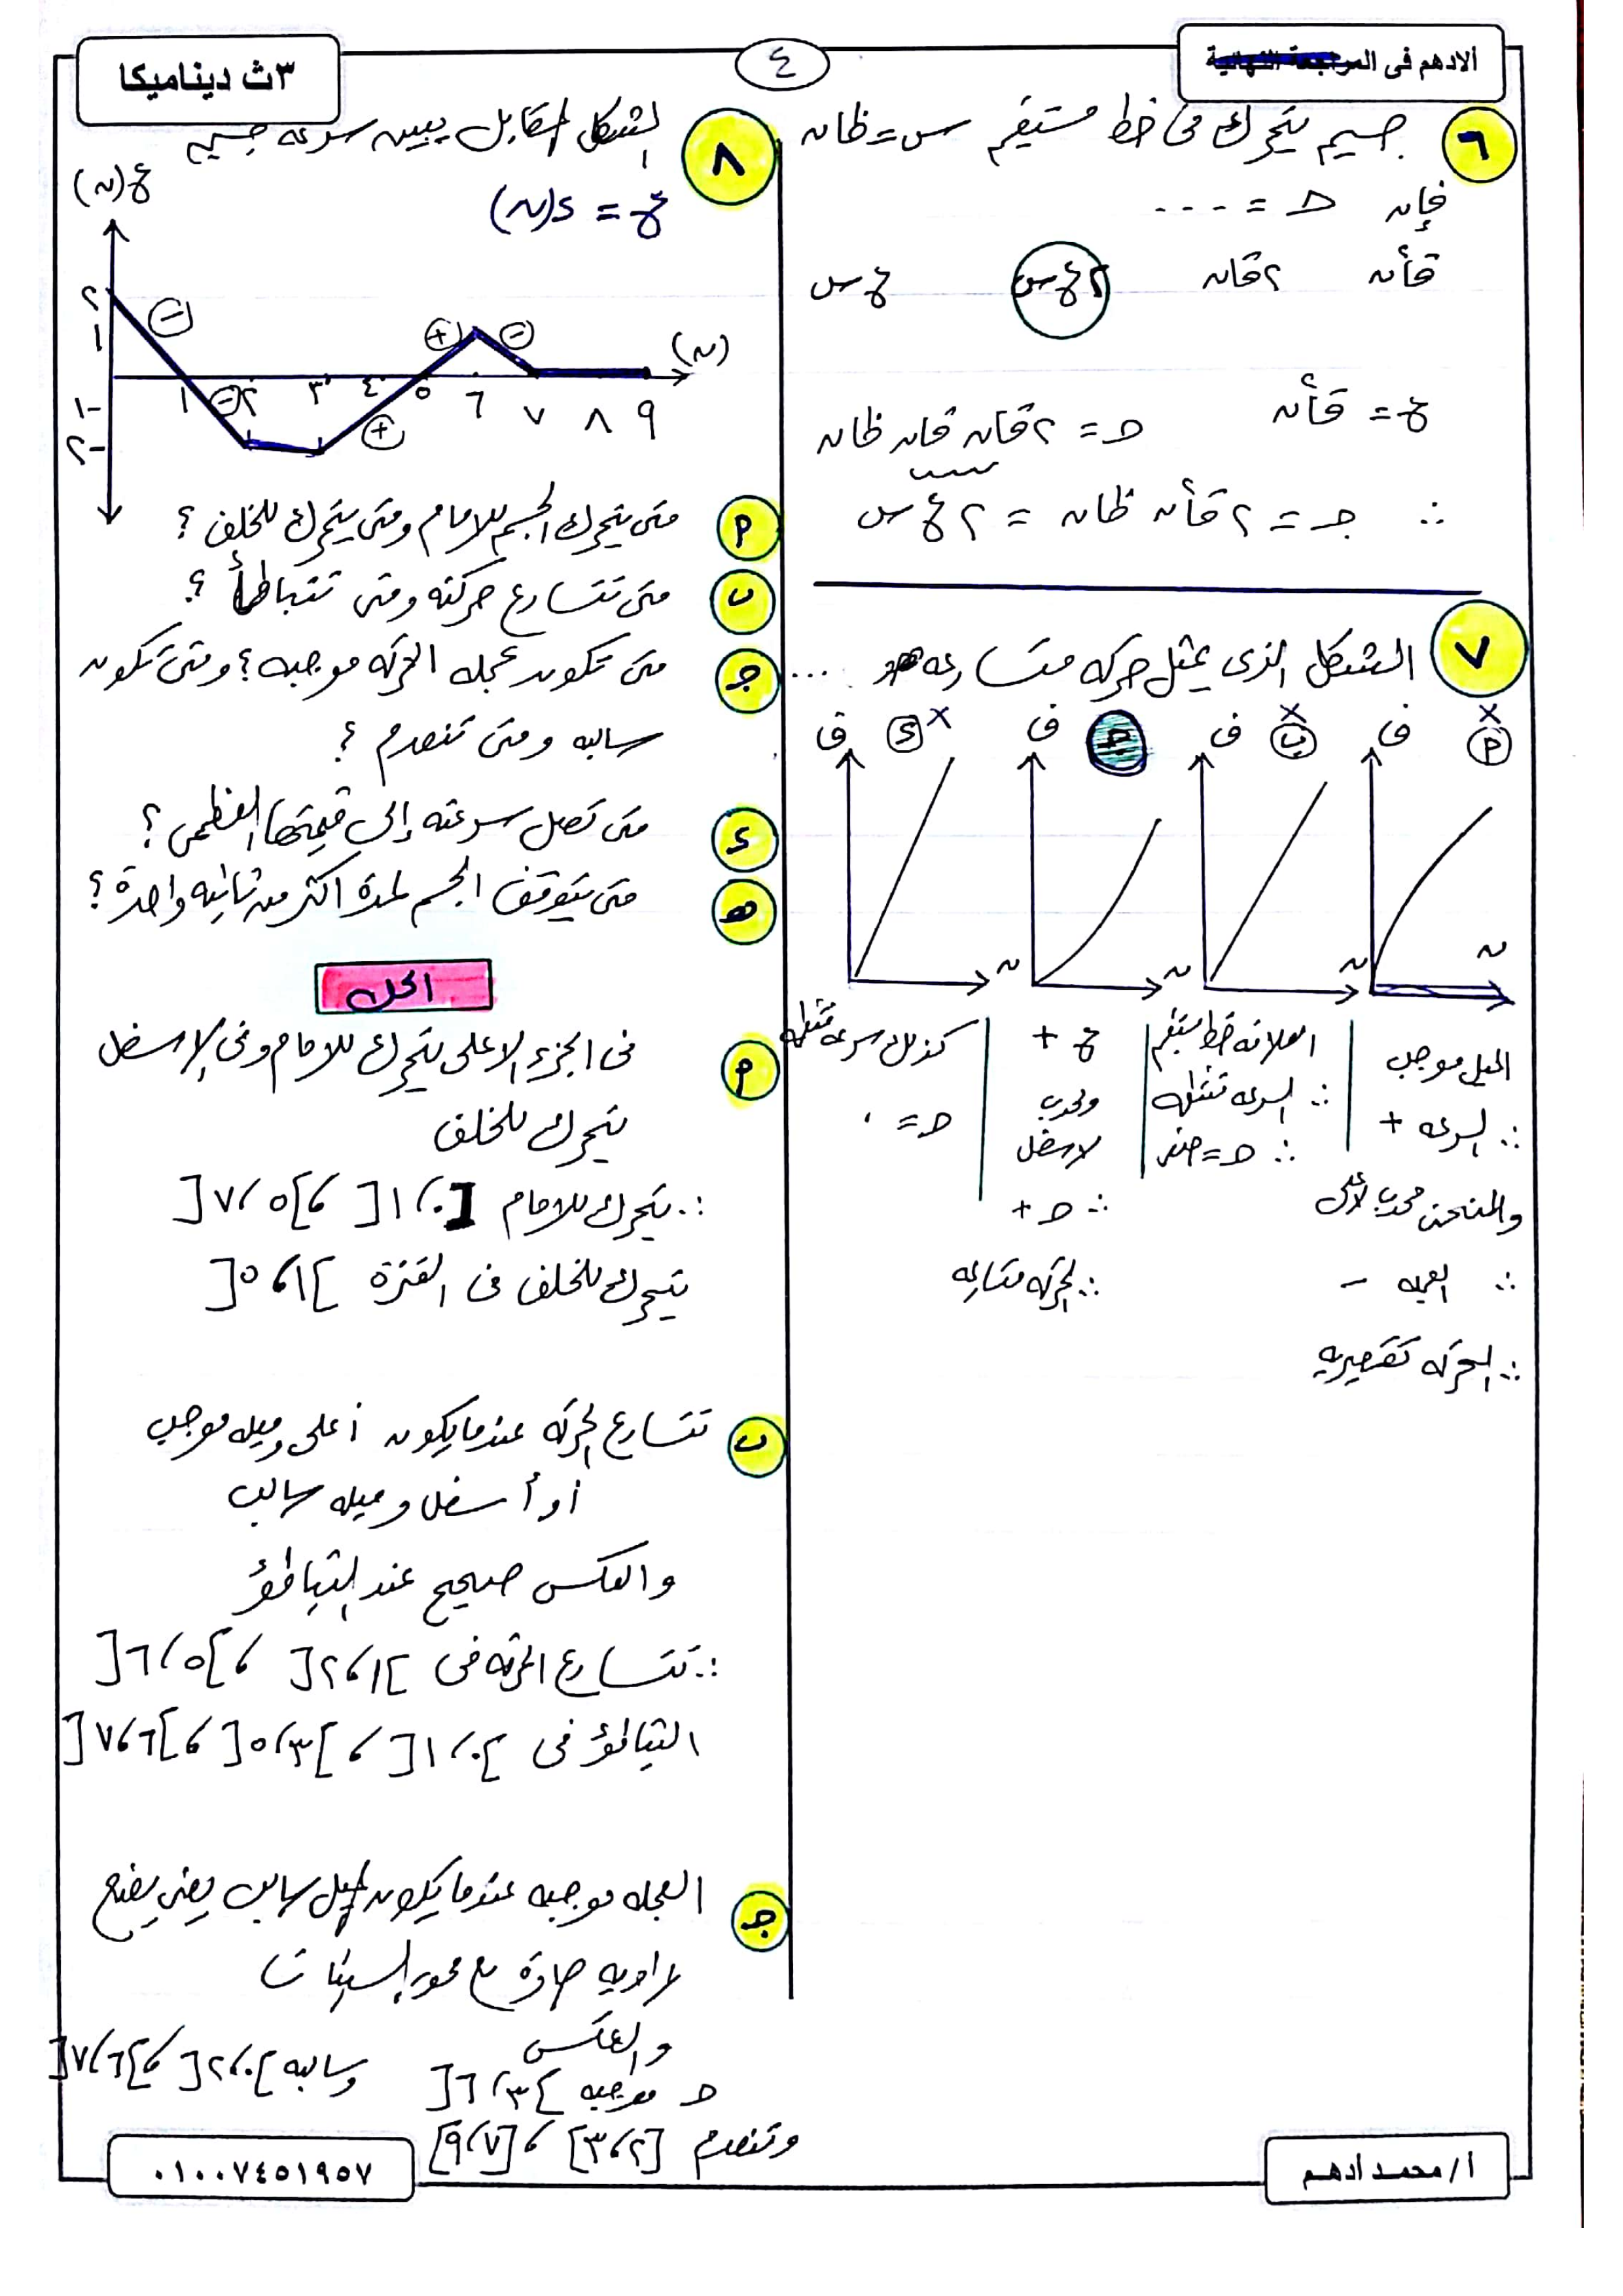 الادهم فى المراجعة النهائية
٤
٣ث ديناميكا
٦ جسيم يتحرك فى خط مستقيم س = ظا ن
فإن حـ = ....
قا٢ن
٢ قا ن
٢ ع س
ع س
ع = قا٢ن
حـ = ٢ قا ن قا ن ظا ن
∴ جـ = ٢ قا٢ن ظا ن = ٢ ع س
٧ الشكل الذى يمثل حركه متسارعه هو ...
x x x
أ ب جـ د
ف ف ف ف
ن ن ن ن
الميل موجب
∴ السرعه +
والمنحنى محدب لأعلى
∴ العجله -
∴ الحركه تقصيريه
العلاقه خط مستقيم
∴ السرعه منتظمه
∴ حـ = صفر
ع +
ومحدب
لاسفل
∴ حـ +
∴ الحركه متسارعه
كذلك سرعه منتظمه
حـ = ٠
٨ الشكل المقابل يبين سرعه جسيم
ع = د(ن)
ع(ن)
٢
١
١-
٢-
١ ٢ ٣ ٤ ٥ ٦ ٧ ٨ ٩
(ن)
(-) (-) (+) (+) (-)
أ متى يتحرك الجسم للامام ومتى يتحرك للخلف ؟
ب متى تتسارع حركته ومتى تتباطأ ؟
جـ متى تكون عجله الحركه موجبه ؟ ومتى تكون
سالبه ومتى تنعدم ؟
د متى تصل سرعته إلى قيمتها العظمى ؟
هـ متى يتوقف الجسم لمدة اكثر من ثانيه واحدة ؟
الحل
أ فى الجزء الاعلى يتحرك للامام وفى الاسفل
يتحرك للخلف
∴ يتحرك للامام [٠، ١[ ، ]٥، ٧[
يتحرك للخلف فى الفترة ]١، ٥[
ب تتسارع الحركه عندما يكون أعلى وميله موجب
أو أسفل وميله سالب
والعكس صحيح عند التباطؤ
∴ تتسارع الحركه فى ]١، ٢[ ، ]٥، ٦[
التباطؤ فى ]٠، ١[ ، ]٣، ٥[ ، ]٦، ٧[
جـ العجله موجبه عندما يكون الميل سالب يعنى يصنع
زاويه حادة مع محور السينات
والعكس
حـ موجبه ]٣، ٦[ وسالبه ]٠، ٢[ ، ]٦، ٧[
وتنعدم [٢، ٣] ، [٧، ٩]
أ/ محمد أدهم
٠١٠٠٧٤٥١٩٥٧